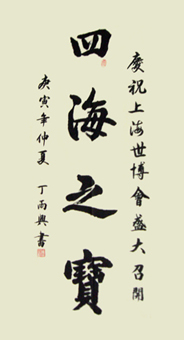 慶祝上海世博會盛大召開
四海之寶
庚寅年仲夏 丁雨興書